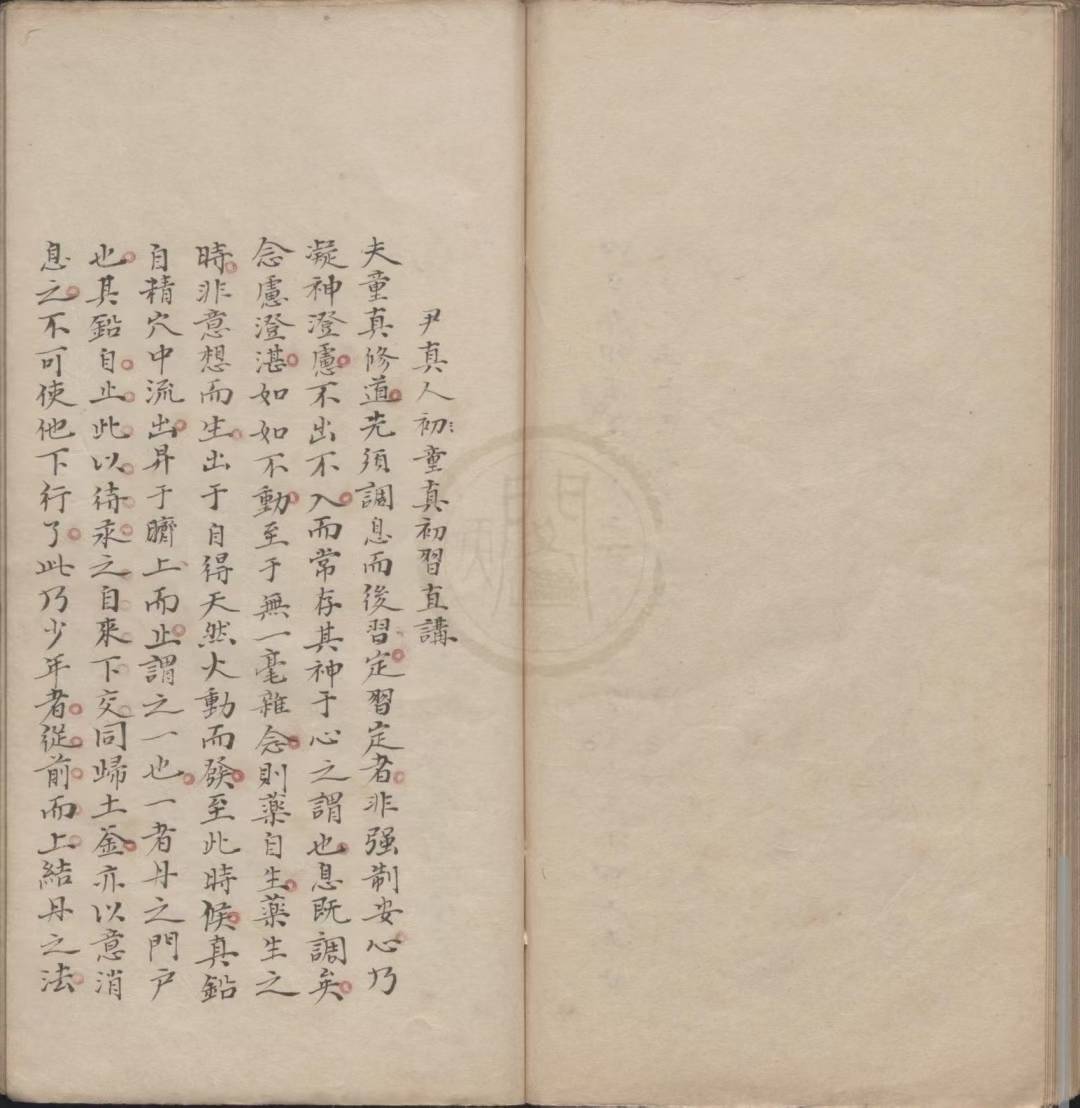 尹真人初童真初習直講
夫童真修道先須調息而後習定習定者非强制安心乃
凝神澄慮不出不入而常存其神于心之謂也息既調矣
念慮澄湛如如不動至于無一毫雜念則藥自生藥生之
時非意想而生出于自得天然火動而發至此時候真鉛
自精穴中流出昇于臍上而止謂之一也一者丹之門户
也其鉛自止此以待汞之自來下交同歸土釜亦以意消
息之不可使他下行了此乃少年者從前而上結丹之法